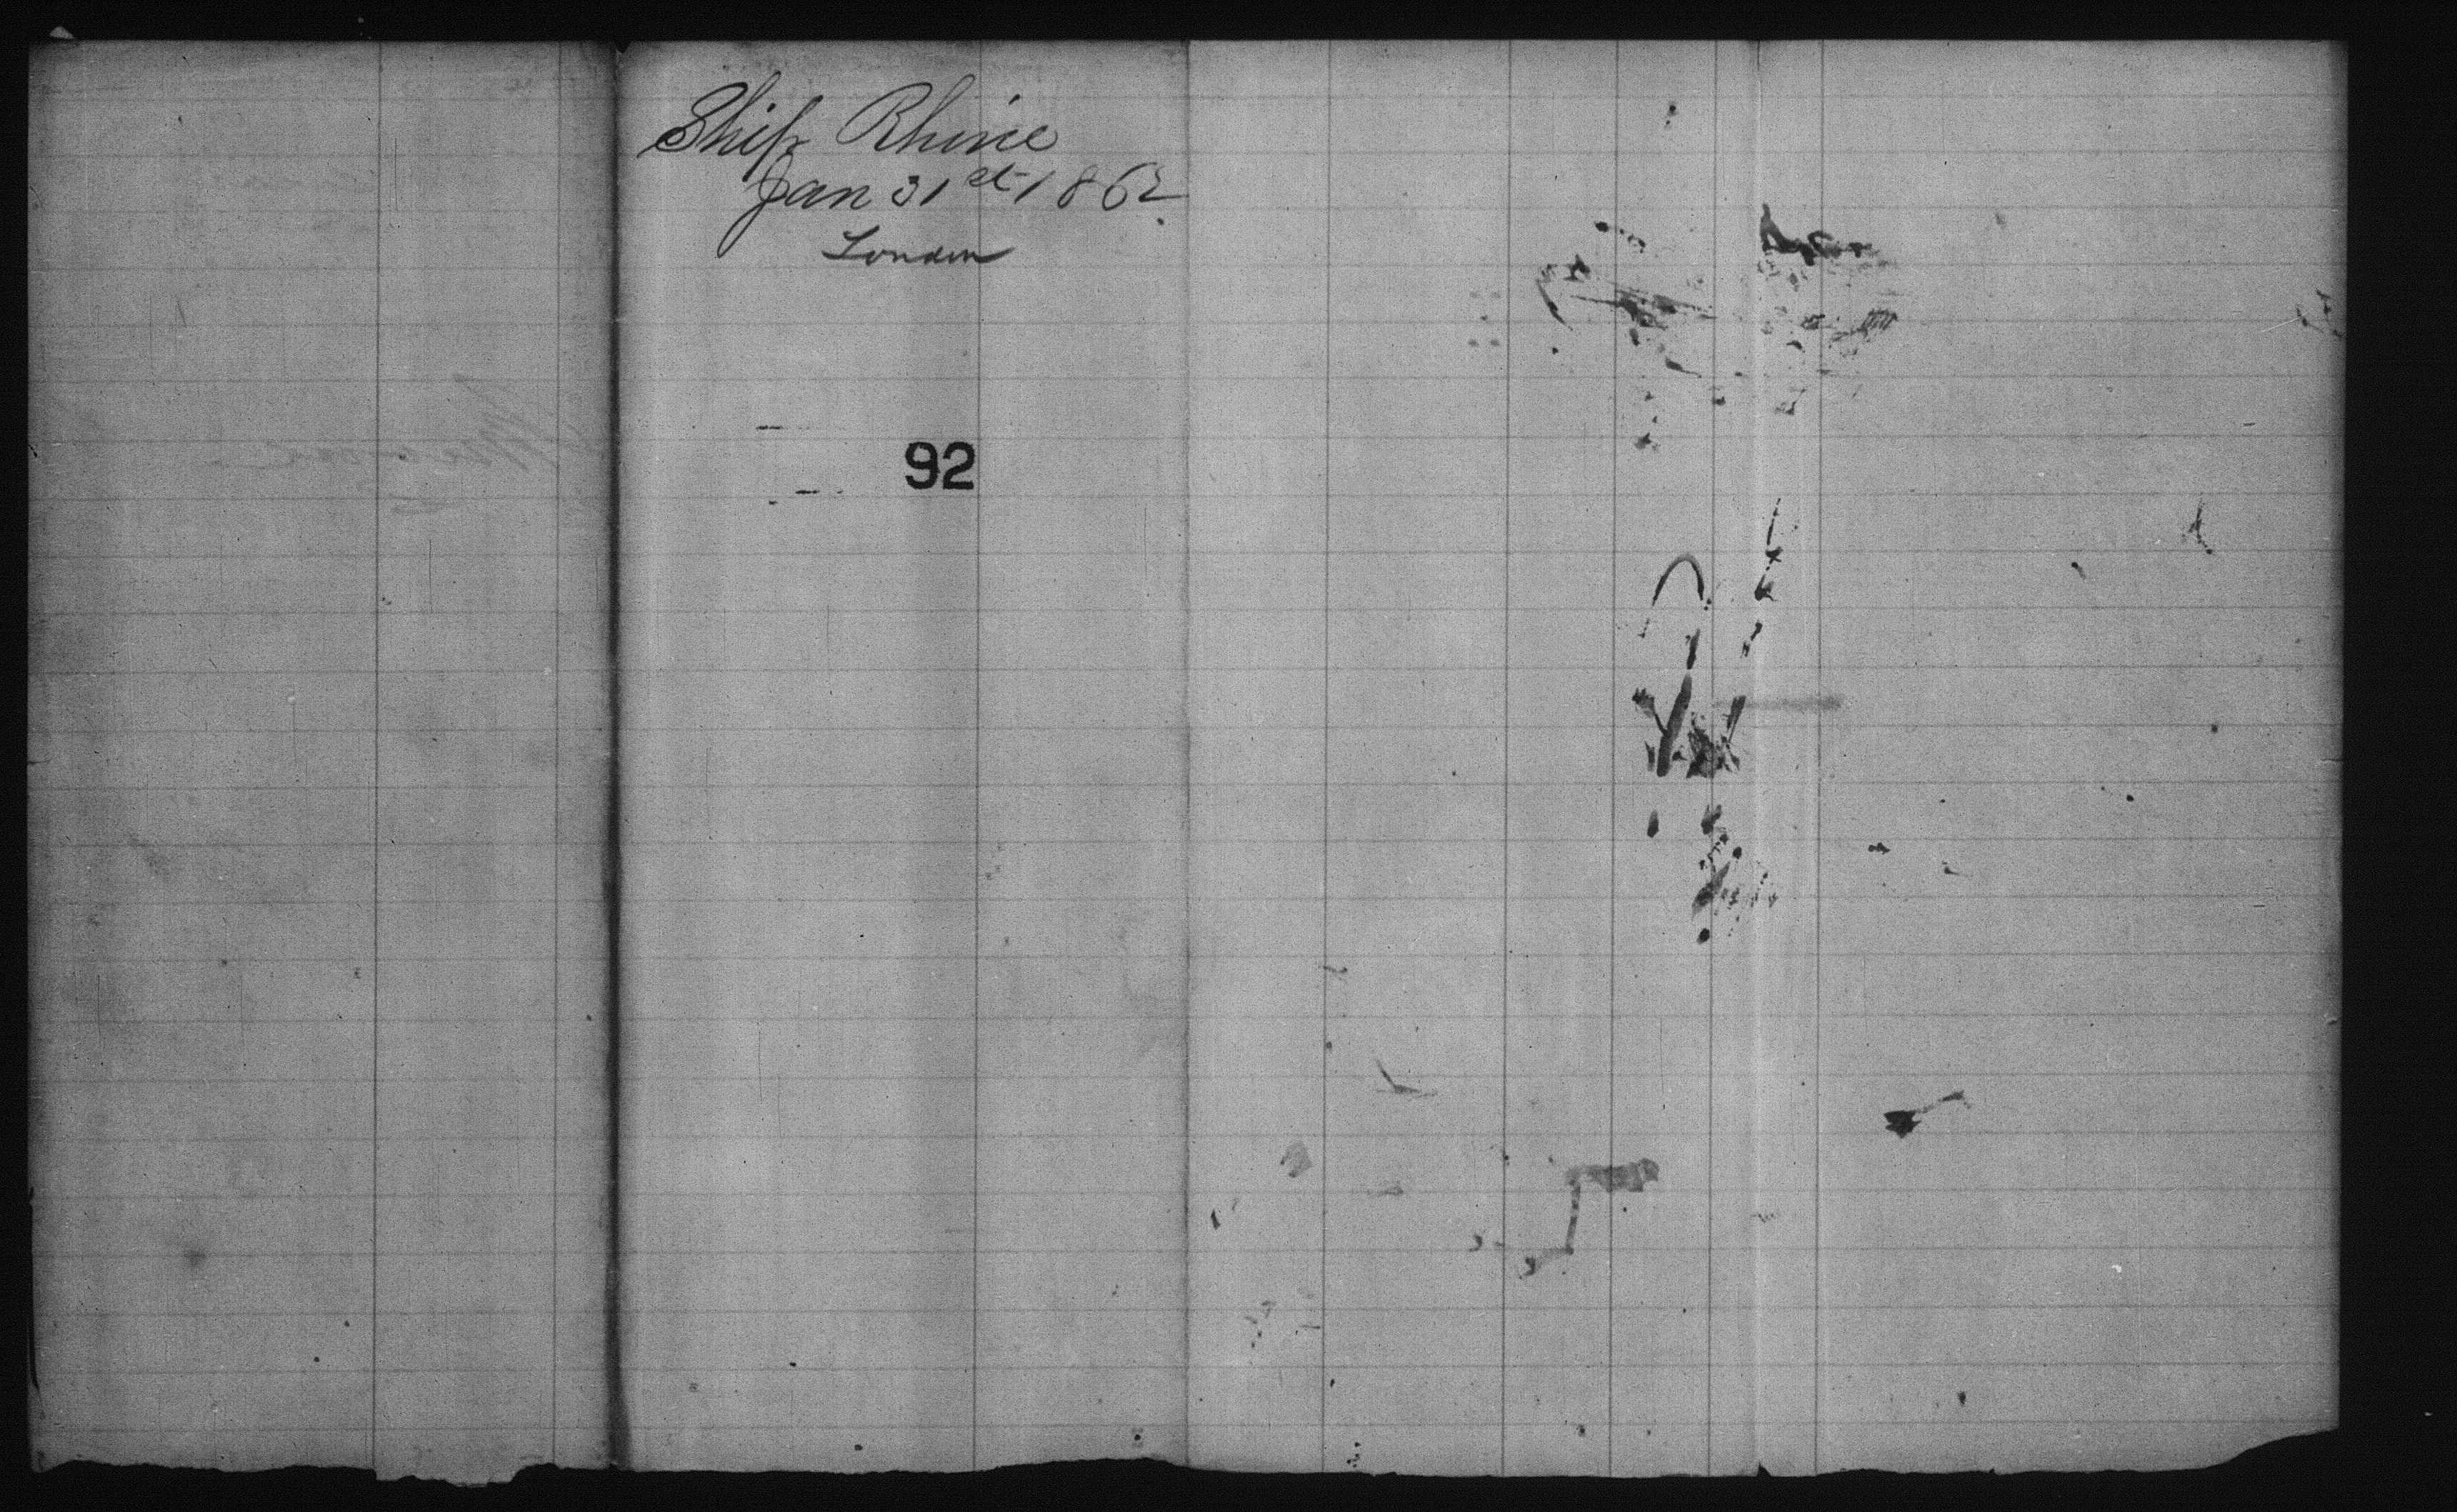 Ship Rhine
Jan 31st 1862
London
92